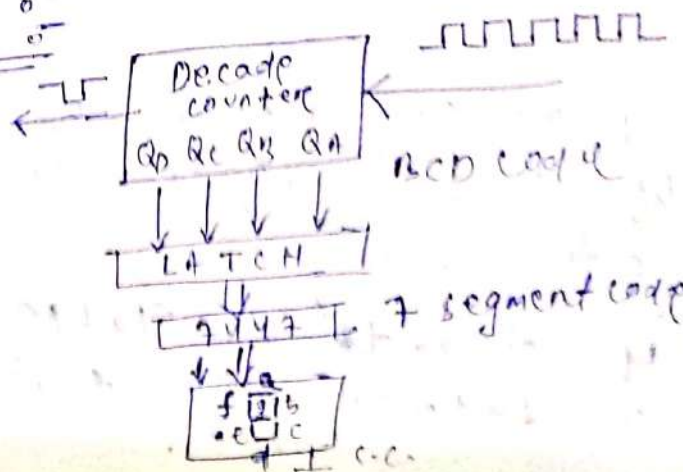 Decade
counter
QD QC QB QA
BCD code
LATCH
7447
7 segment code
a
f g b
e c
d
C.C.